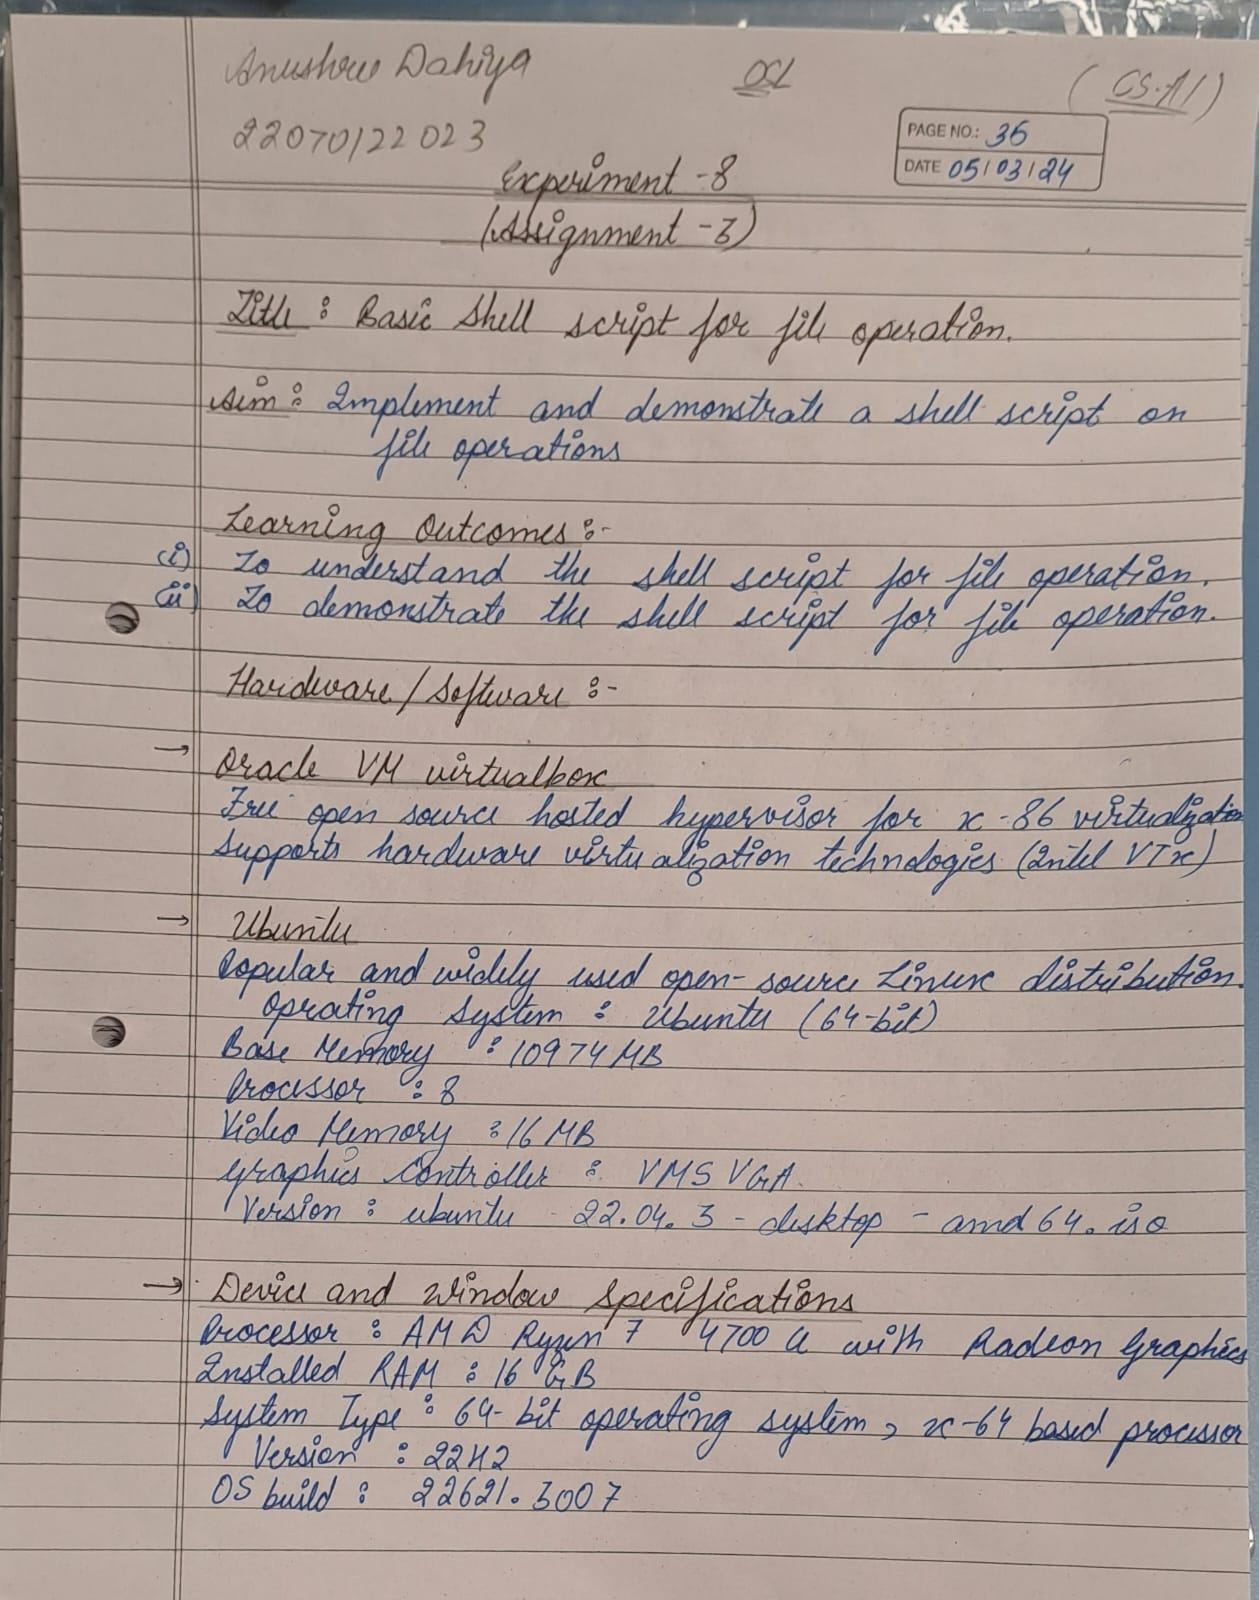 Anushree Dahiya
OSL
(CS-A1)
22070122023
PAGE NO.: 36
DATE 05/03/24
Experiment - 8
(Assignment - 3)
Title : Basic Shell script for file operation.
Aim : Implement and demonstrate a shell script on
file operations
Learning Outcomes :-
(i) To understand the shell script for file operation.
(ii) To demonstrate the shell script for file operation.
Hardware / Software :-
→ Oracle VM virtualbox
Free open source hosted hypervisor for x-86 virtualization
Supports hardware virtualization technologies (Intel VTx)
→ Ubuntu
Popular and widely used open-source Linux distribution.
Oprating System : Ubuntu (64-bit)
Base Memory : 10974 MB
Processor : 8
Video Memory : 16 MB
Graphics Controller : VMS VGA.
Version : ubuntu - 22.04.3 - desktop - amd 64. iso
→ Device and Window Specifications
Processor : AMD Ryzen 7 4700 U with Radeon Graphics
Installed RAM : 16 GB
System Type : 64-bit operating system, x-64 based processor
Version : 22H2
OS build : 22621.3007